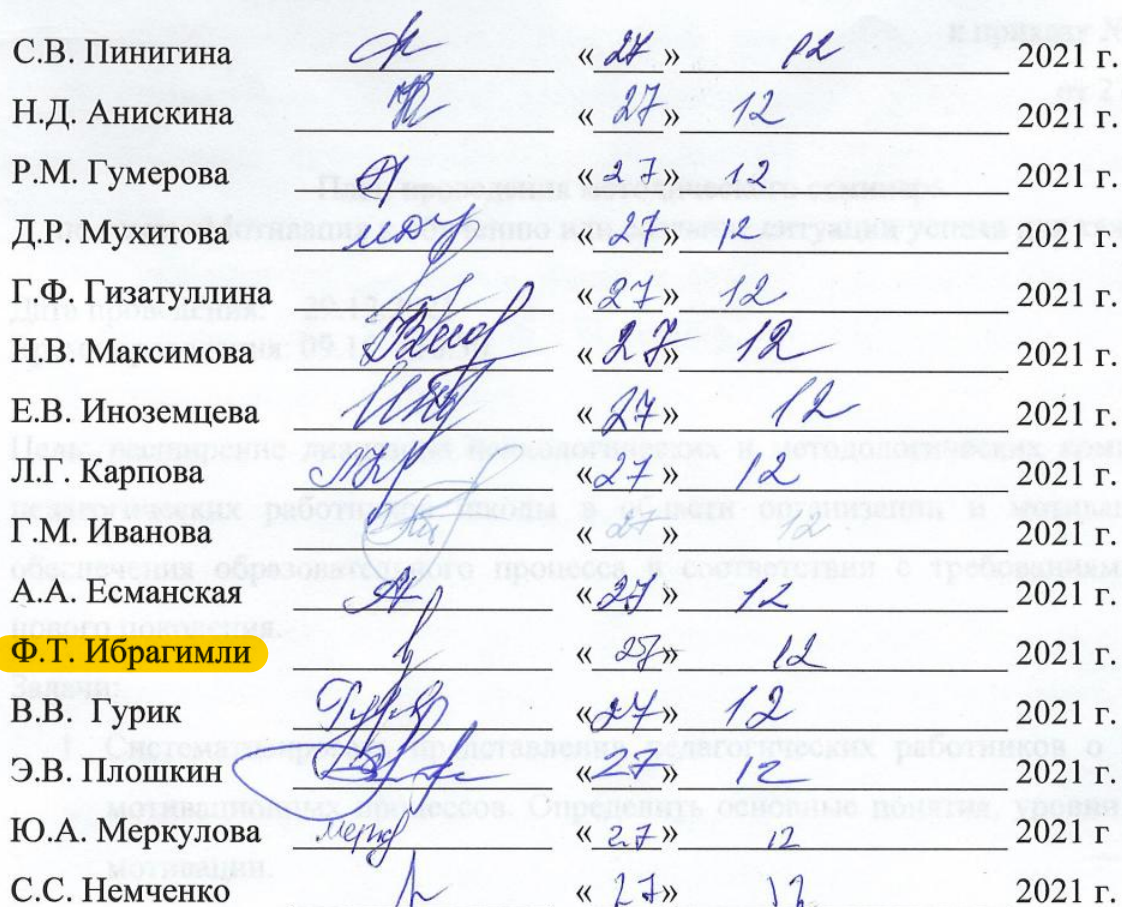 С.В. Пинигина « 27 » 12 2021 г.
Н.Д. Анискина « 27 » 12 2021 г.
Р.М. Гумерова « 27 » 12 2021 г.
Д.Р. Мухитова « 27 » 12 2021 г.
Г.Ф. Гизатуллина « 27 » 12 2021 г.
Н.В. Максимова « 27 » 12 2021 г.
Е.В. Иноземцева « 27 » 12 2021 г.
Л.Г. Карпова « 27 » 12 2021 г.
Г.М. Иванова « 27 » 12 2021 г.
А.А. Есманская « 27 » 12 2021 г.
Ф.Т. Ибрагимли « » 12 2021 г.
В.В. Гурик « 27 » 12 2021 г.
Э.В. Плошкин « 27 » 12 2021 г.
Ю.А. Меркулова Мерк « 27 » 12 2021 г
С.С. Немченко « 27 » 12 2021 г.